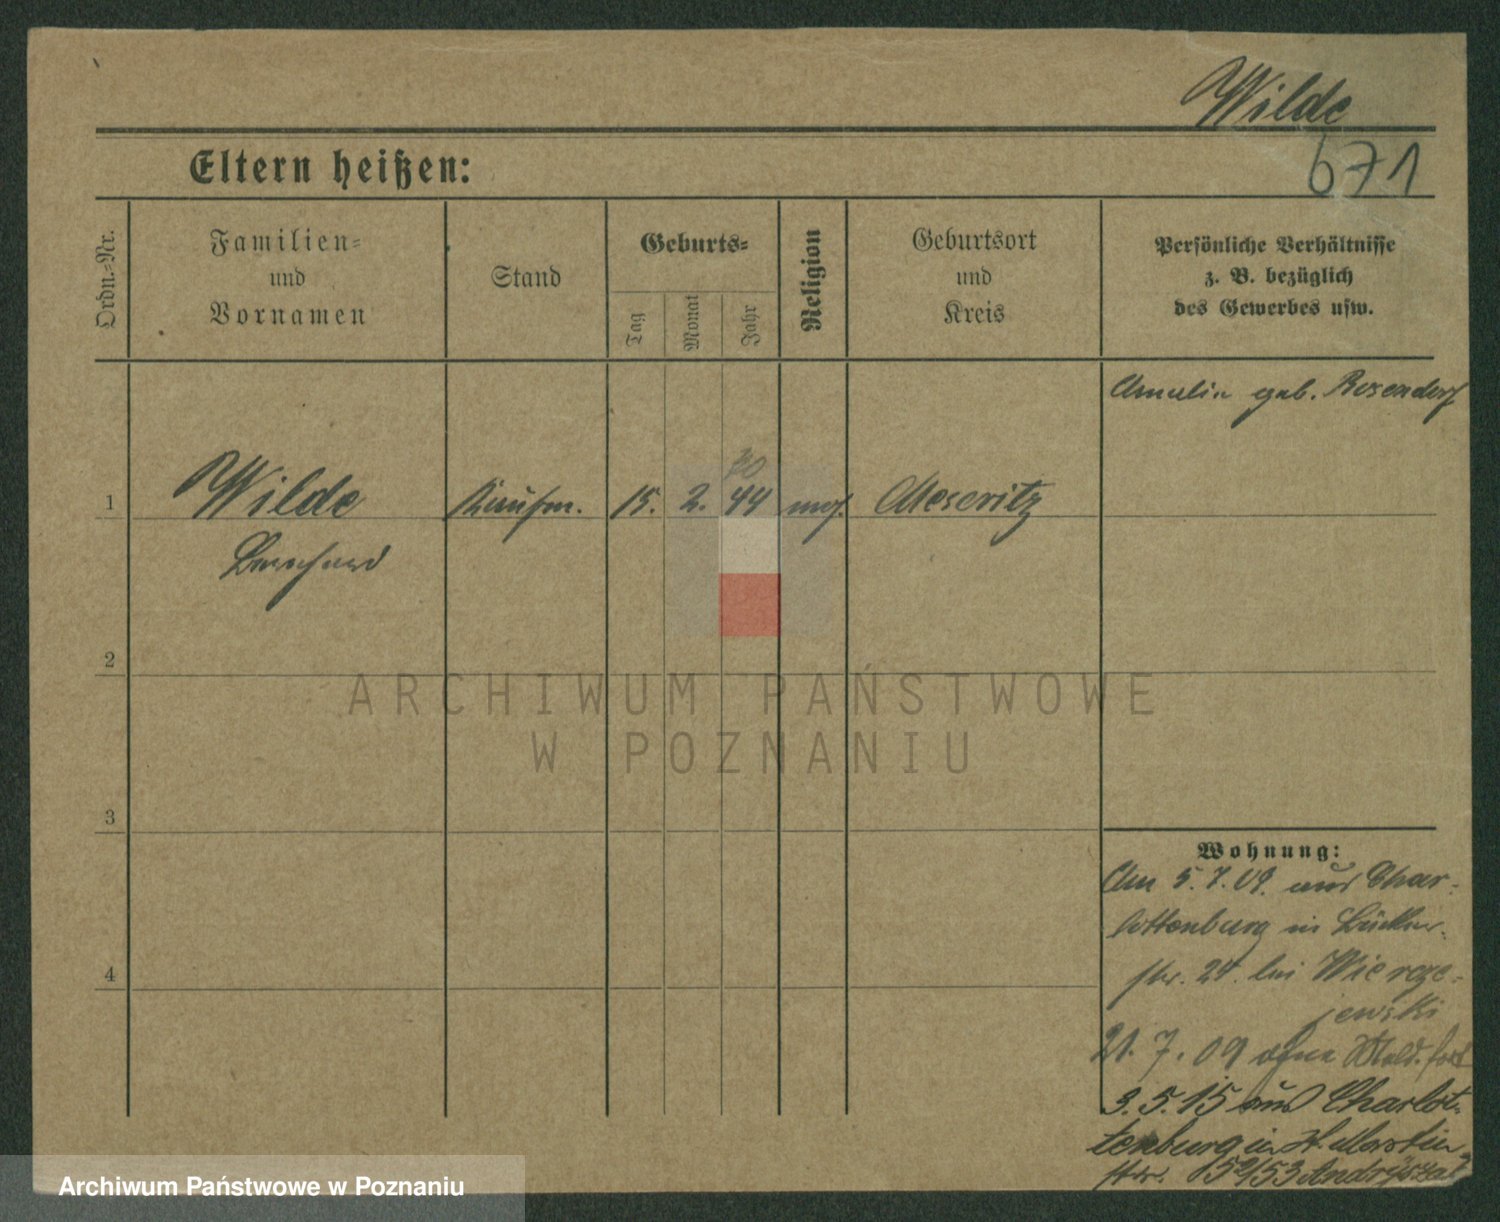 Wilde
671
Eltern heißen:
Ordn.=Nr.
Familien=
und
Vornamen
Stand
Geburts=
Tag
Monat
Jahr
Religion
Geburtsort
und
Kreis
Persönliche Verhältnisse
z. B. bezüglich
des Gewerbes usw.
Amalie geb. Rosendorf
1
Wilde
Kaufm.
15.
2.
44
mos.
Meseritz
Bernhard
2
3
4
Wohnung:
Am 5.7.09. aus Char-
lottenburg in
str. 24. bei Wierze-
jewski
21. 7. 09 ohne Meld. fort
3. 5. 15 aus Charlot-
tenburg in St. Martin
str. 52/53
ARCHIWUM PAŃSTWOWE
W POZNANIU
Archiwum Państwowe w Poznaniu